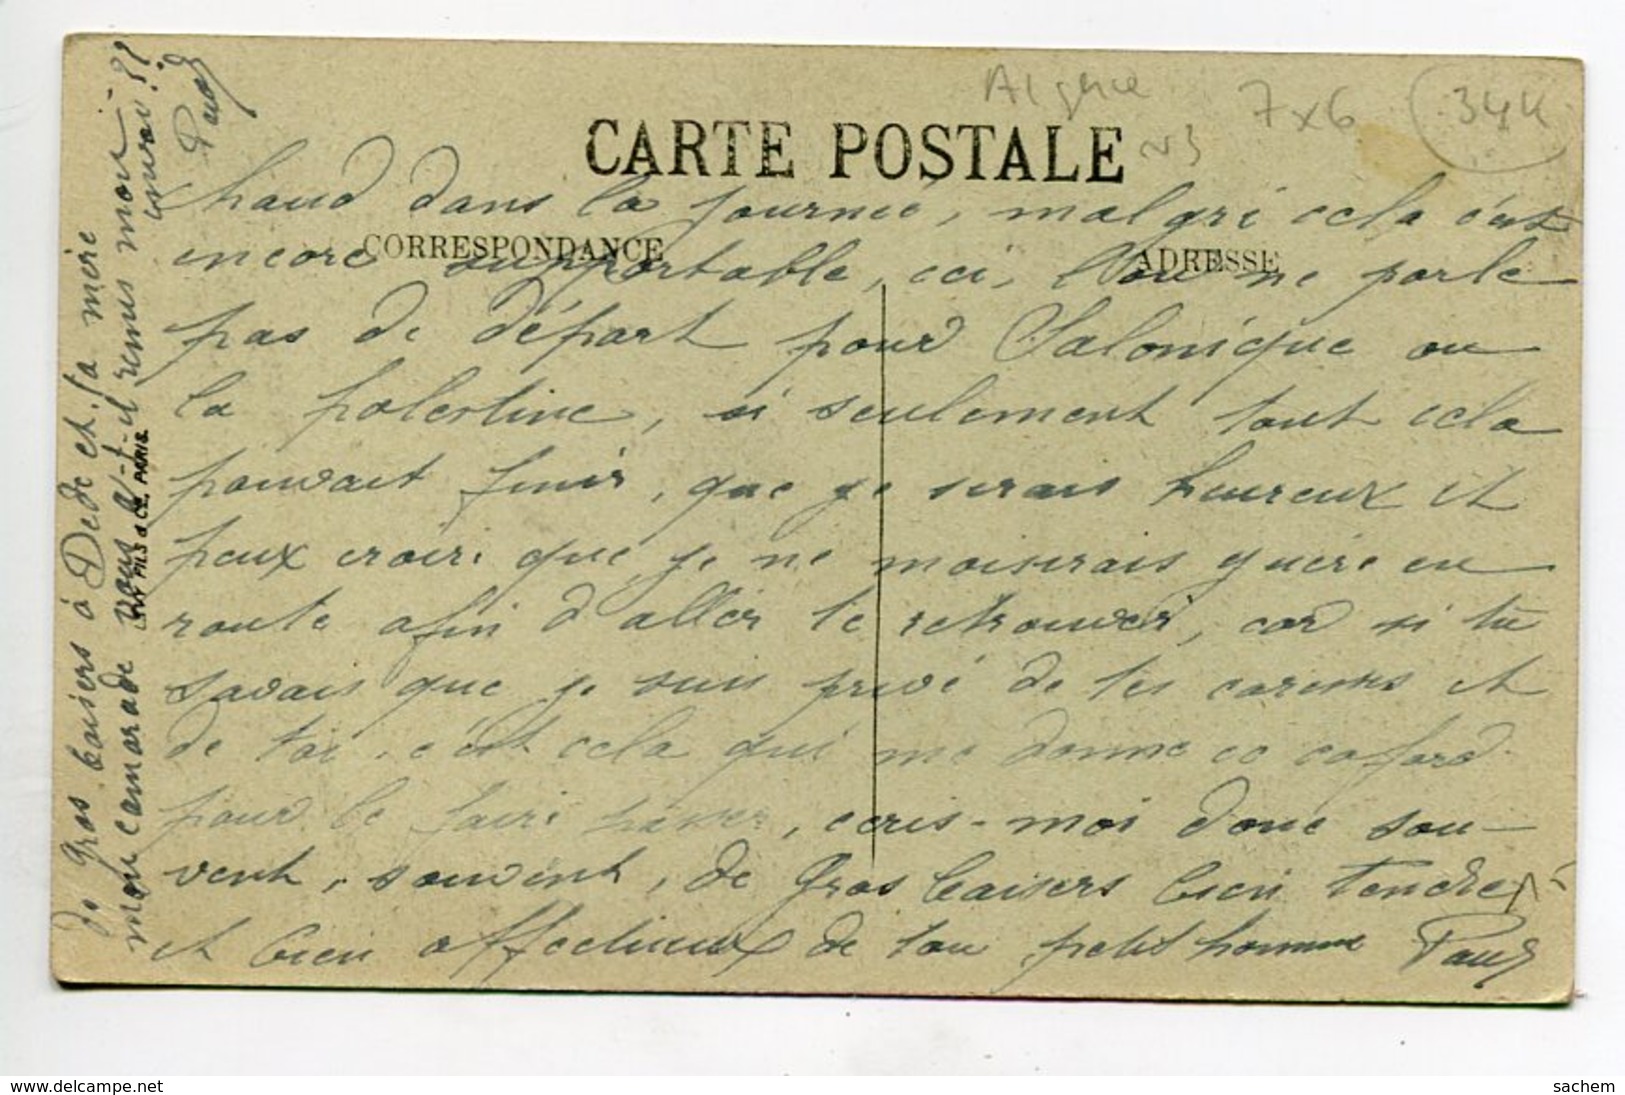 Algérie
7x6
34K
CARTE POSTALE
CORRESPONDANCE
ADRESSE
chaud dans la journée, malgré cela c'est
encore supportable, ici, l'on ne parle
pas de départ pour Salonique ou
la palestine, si seulement tout cela
pouvait finir, que je serais heureux et
peux croire que je ne moisirais guère en
route afin d'aller te retrouver, car si tu
savais que je suis privé de tes caresses et
de toi, c'est cela qui me donne ce cafard
pour le faire passer, écris-moi donc sou-
vent, souvent, de gros baisers bien tendres
et bien affectueux de ton petit homme Paul
De gros baisers à Dédé et sa mère
mon camarade vous a-t-il remis mon
envoi??
Paul
LEVY FILS & Cie, PARIS
www.delcampe.net
sachem